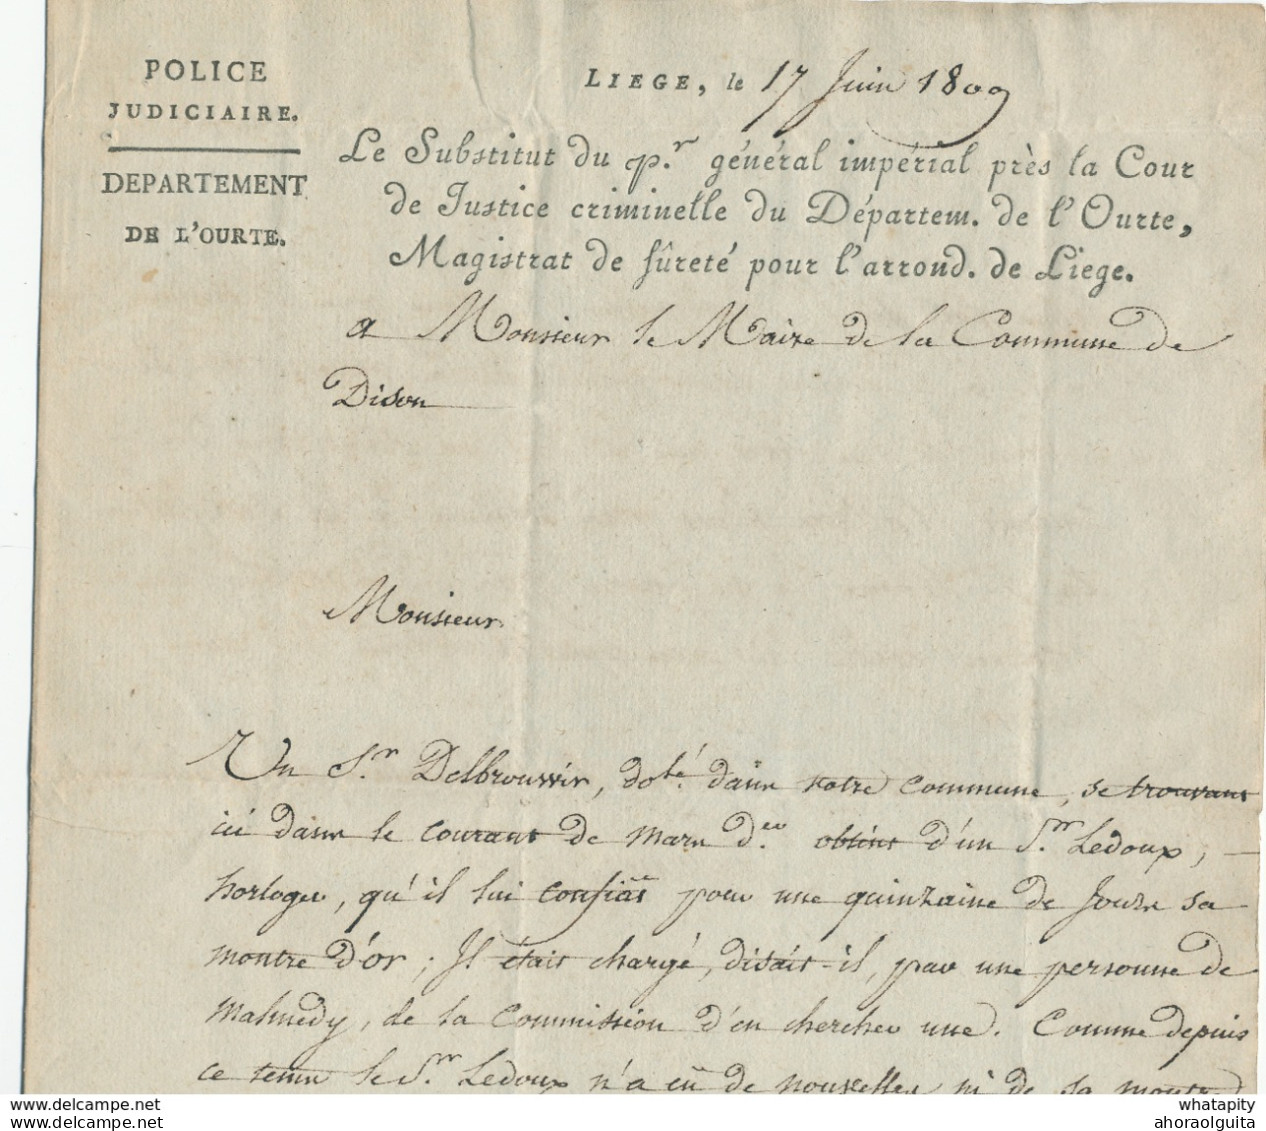 POLICE
JUDICIAIRE.
DEPARTEMENT
DE L'OURTE.
LIEGE, le 17 Juin 1809
Le Substitut du p.r général impérial près la Cour
de Justice criminelle du Départem. de l'Ourte,
Magistrat de sûreté pour l'arrond. de Liege.
a Monsieur le Maire de la Commune de
Dison
Monsieur
Un S.r Delbrouvir, do.té dans votre commune, se trouvant
ici dans le courant de mars d.er obtint d'un S.r Ledoux,
horloger, qu'il lui confiât pour une quinzaine de Jours sa
montre d'or ; Il était chargé, disait-il, par une personne de
Malmedy, de la Commission d'en chercher une. Comme depuis
ce tems le S.r Ledoux n'a eü de nouvelles ni de sa montre
delcampe.net
whatapity
ahoraolguita